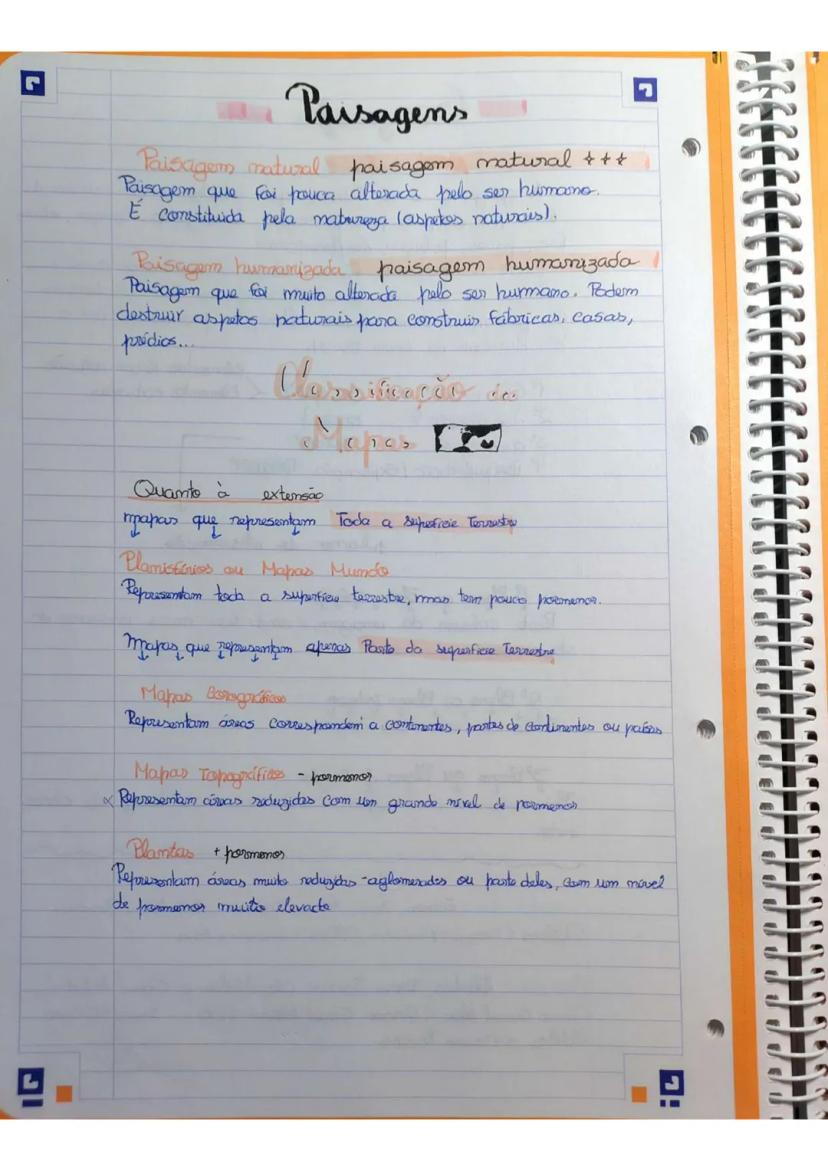 Paisagens
Paisagem natural paisagem natural +++
Paisagem que foi pouca alterada pelo ser humano.
É constituida pela natureza (aspetos naturais).
Paisagem humanizada paisagem humanizada
Paisagem que foi muito alterada pelo ser humano. Podem
destruir aspetos naturais para construir fábricas, casas,
prédios...
Classificação de
Mapas
Quanto à extensão
mapas que representam Toda a superficie Terrestre
Planisférios ou Mapas Mundo
Representam toda a superficie terrestre, mas tem pouco pormenor.
Mapas que representam apenas Parte da superficie Terrestre
Mapas Corográficos
Representam áreas correspondem a continentes, partes de continentes ou países
Mapas Topográficos - pormenor
Representam áreas reduzidas com um grande nivel de pormenor
Plantas + pormenor
Representam áreas muito reduzidas - aglomerados ou parte deles, com um nível
de pormenor muito elevado